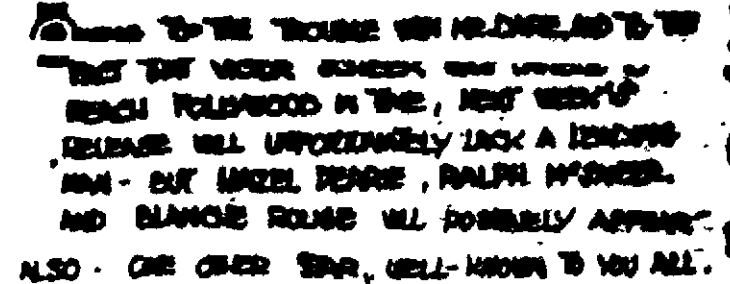 TO THE TROUBLE WITH MR. DARE, AND TO THE
FACT THAT VICTOR
REACH HOLLYWOOD IN TIME, NEXT WEEK'S
RELEASE WILL UNFORTUNATELY LACK A LEADING
MAN - BUT HAZEL DEARIE, RALPH McSNEER.
AND BLANCHE ROUGE WILL POSITIVELY APPEAR
ALSO. ONE OTHER STAR, WELL-KNOWN TO YOU ALL.